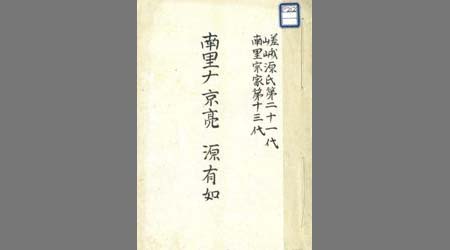 嵯峨源氏第二十一代
南里宗家第十三代
南里ナ京亮 源有如